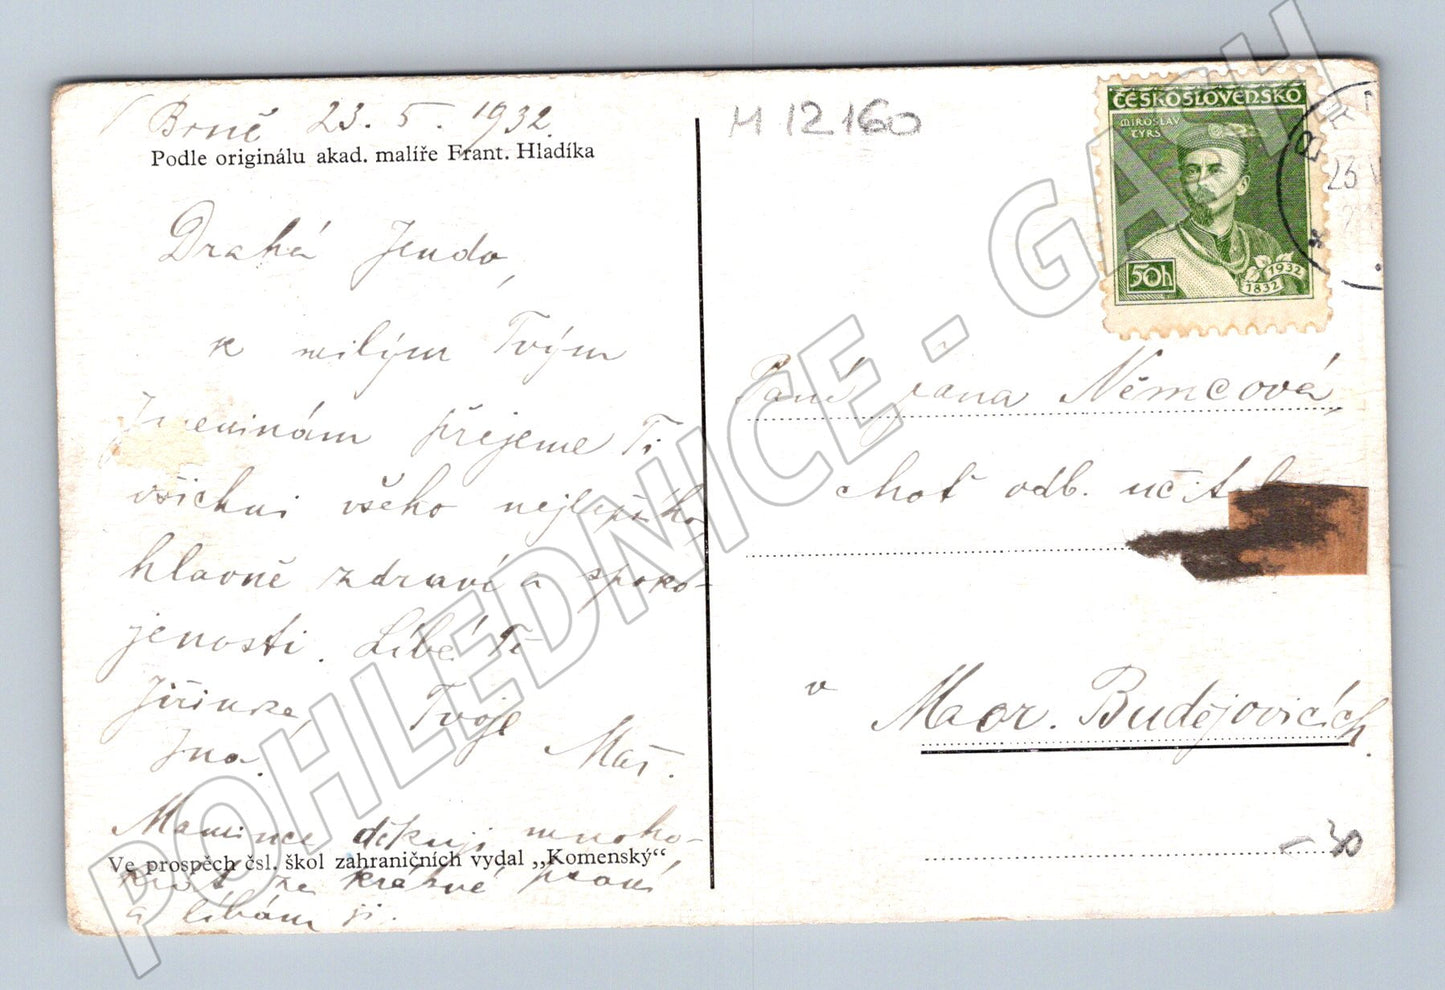 V Brně 23. 5. 1932.
Podle originálu akad. malíře Frant. Hladíka
Drahá Jendo,
k milým Tvým
Jmeninám přejeme Ti
všichni všeho nejlepšího,
hlavně zdraví a spoko-
jenosti. Líbá Tě
Jiřinka, Tvoje
Máň.
Mamince děkuji mnoho-
Ve prospěch čsl. škol zahraničních vydal „Komenský“
krát za krásné psaní
a líbám ji.
H 12160
ČESKOSLOVENSKO
MIROSLAV
TYRŠ
50h
1832 1932
BR
23 V
Paní Jana Němcová,
choť odb. učitele
v Mor. Budějovicích.
-30
POHLEDNICE - GACH